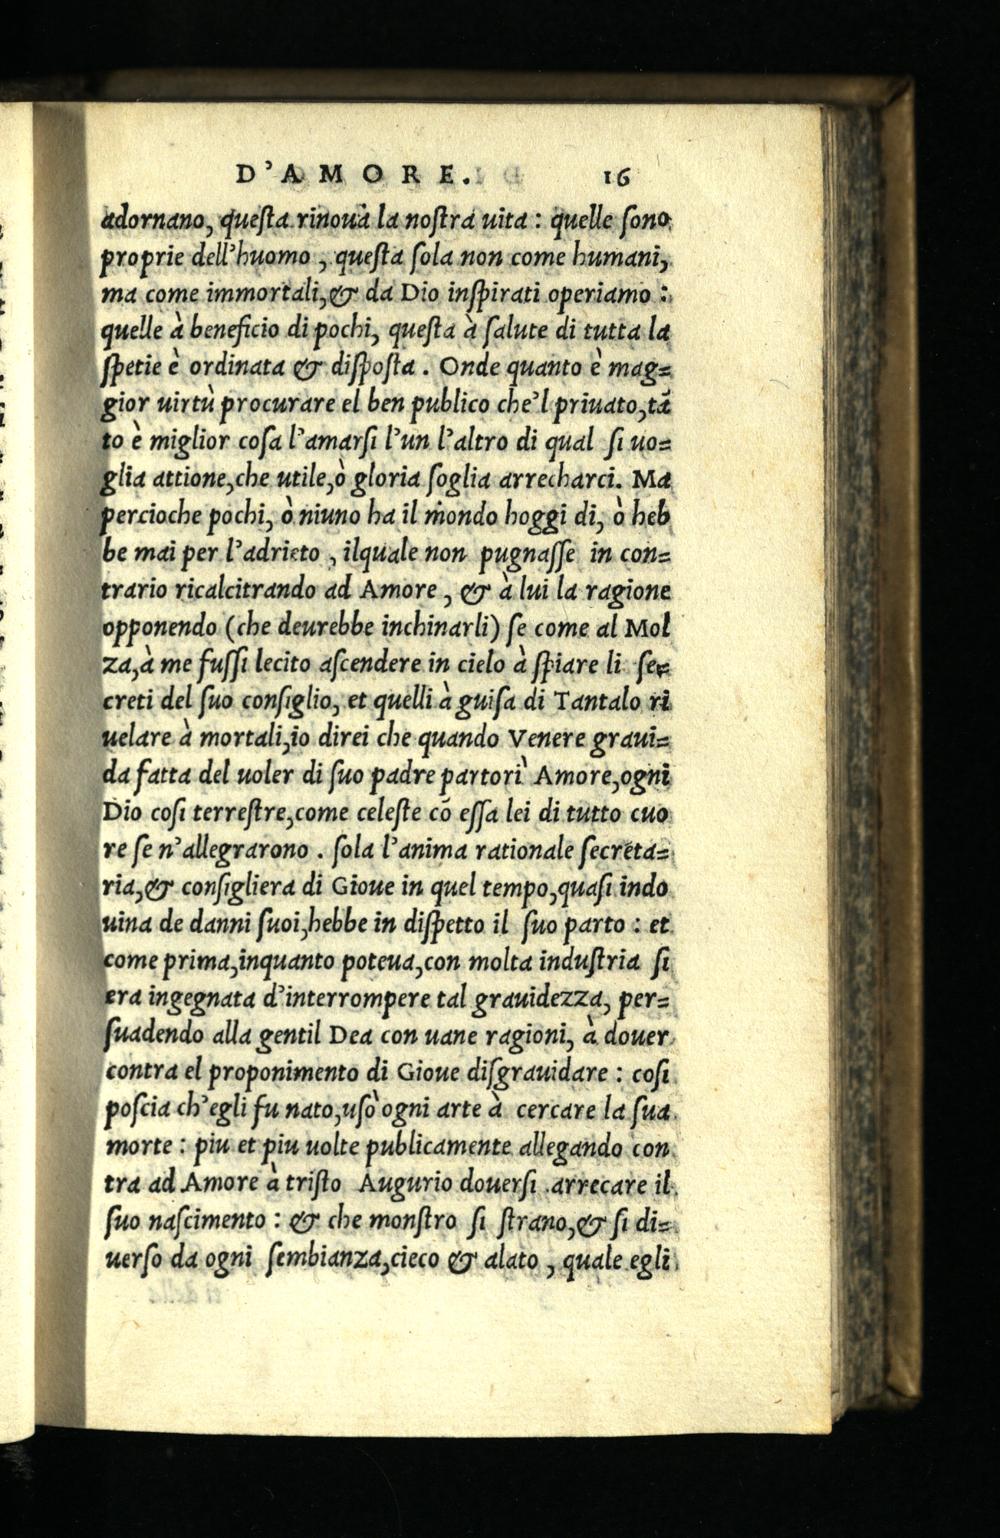 D'AMORE. 16
adornano, queſta rinoua la noſtra uita : quelle ſono
proprie dell'huomo , queſta ſola non come humani,
ma come immortali,& da Dio inſpirati operiamo :
quelle à beneficio di pochi, queſta à ſalute di tutta la
ſpetie è ordinata & diſpoſta . Onde quanto è mag=
gior uirtù procurare el ben publico che'l priuato,tã
to è miglior coſa l'amarſi l'un l'altro di qual ſi uo=
glia attione,che utile,ò gloria ſoglia arrecharci. Ma
percioche pochi, ò niuno ha il mondo hoggi di, ò heb
be mai per l'adrieto , ilquale non pugnaſſe in con=
trario ricalcitrando ad Amore , & à lui la ragione
opponendo (che deurebbe inchinarli) ſe come al Mol
za,à me fuſſi lecito aſcendere in cielo à ſpiare li ſe=
creti del ſuo conſiglio, et quelli à guiſa di Tantalo ri
uelare à mortali,io direi che quando Venere graui=
da fatta del uoler di ſuo padre partorì Amore,ogni
Dio coſi terreſtre,come celeſte cõ eſſa lei di tutto cuo
re ſe n'allegrarono . ſola l'anima rationale ſecreta=
ria,& conſigliera di Gioue in quel tempo,quaſi indo
uina de danni ſuoi,hebbe in diſpetto il ſuo parto : et
come prima,inquanto poteua,con molta induſtria ſi
era ingegnata d'interrompere tal grauidezza, per=
ſuadendo alla gentil Dea con uane ragioni, à douer
contra el proponimento di Gioue diſgrauidare : coſi
poſcia ch'egli fu nato,uſò ogni arte à cercare la ſua
morte : piu et piu uolte publicamente allegando con
tra ad Amore à triſto Augurio douerſi arrecare il
ſuo naſcimento : & che monſtro ſi ſtrano,& ſi di=
uerſo da ogni ſembianza,cieco & alato , quale egli